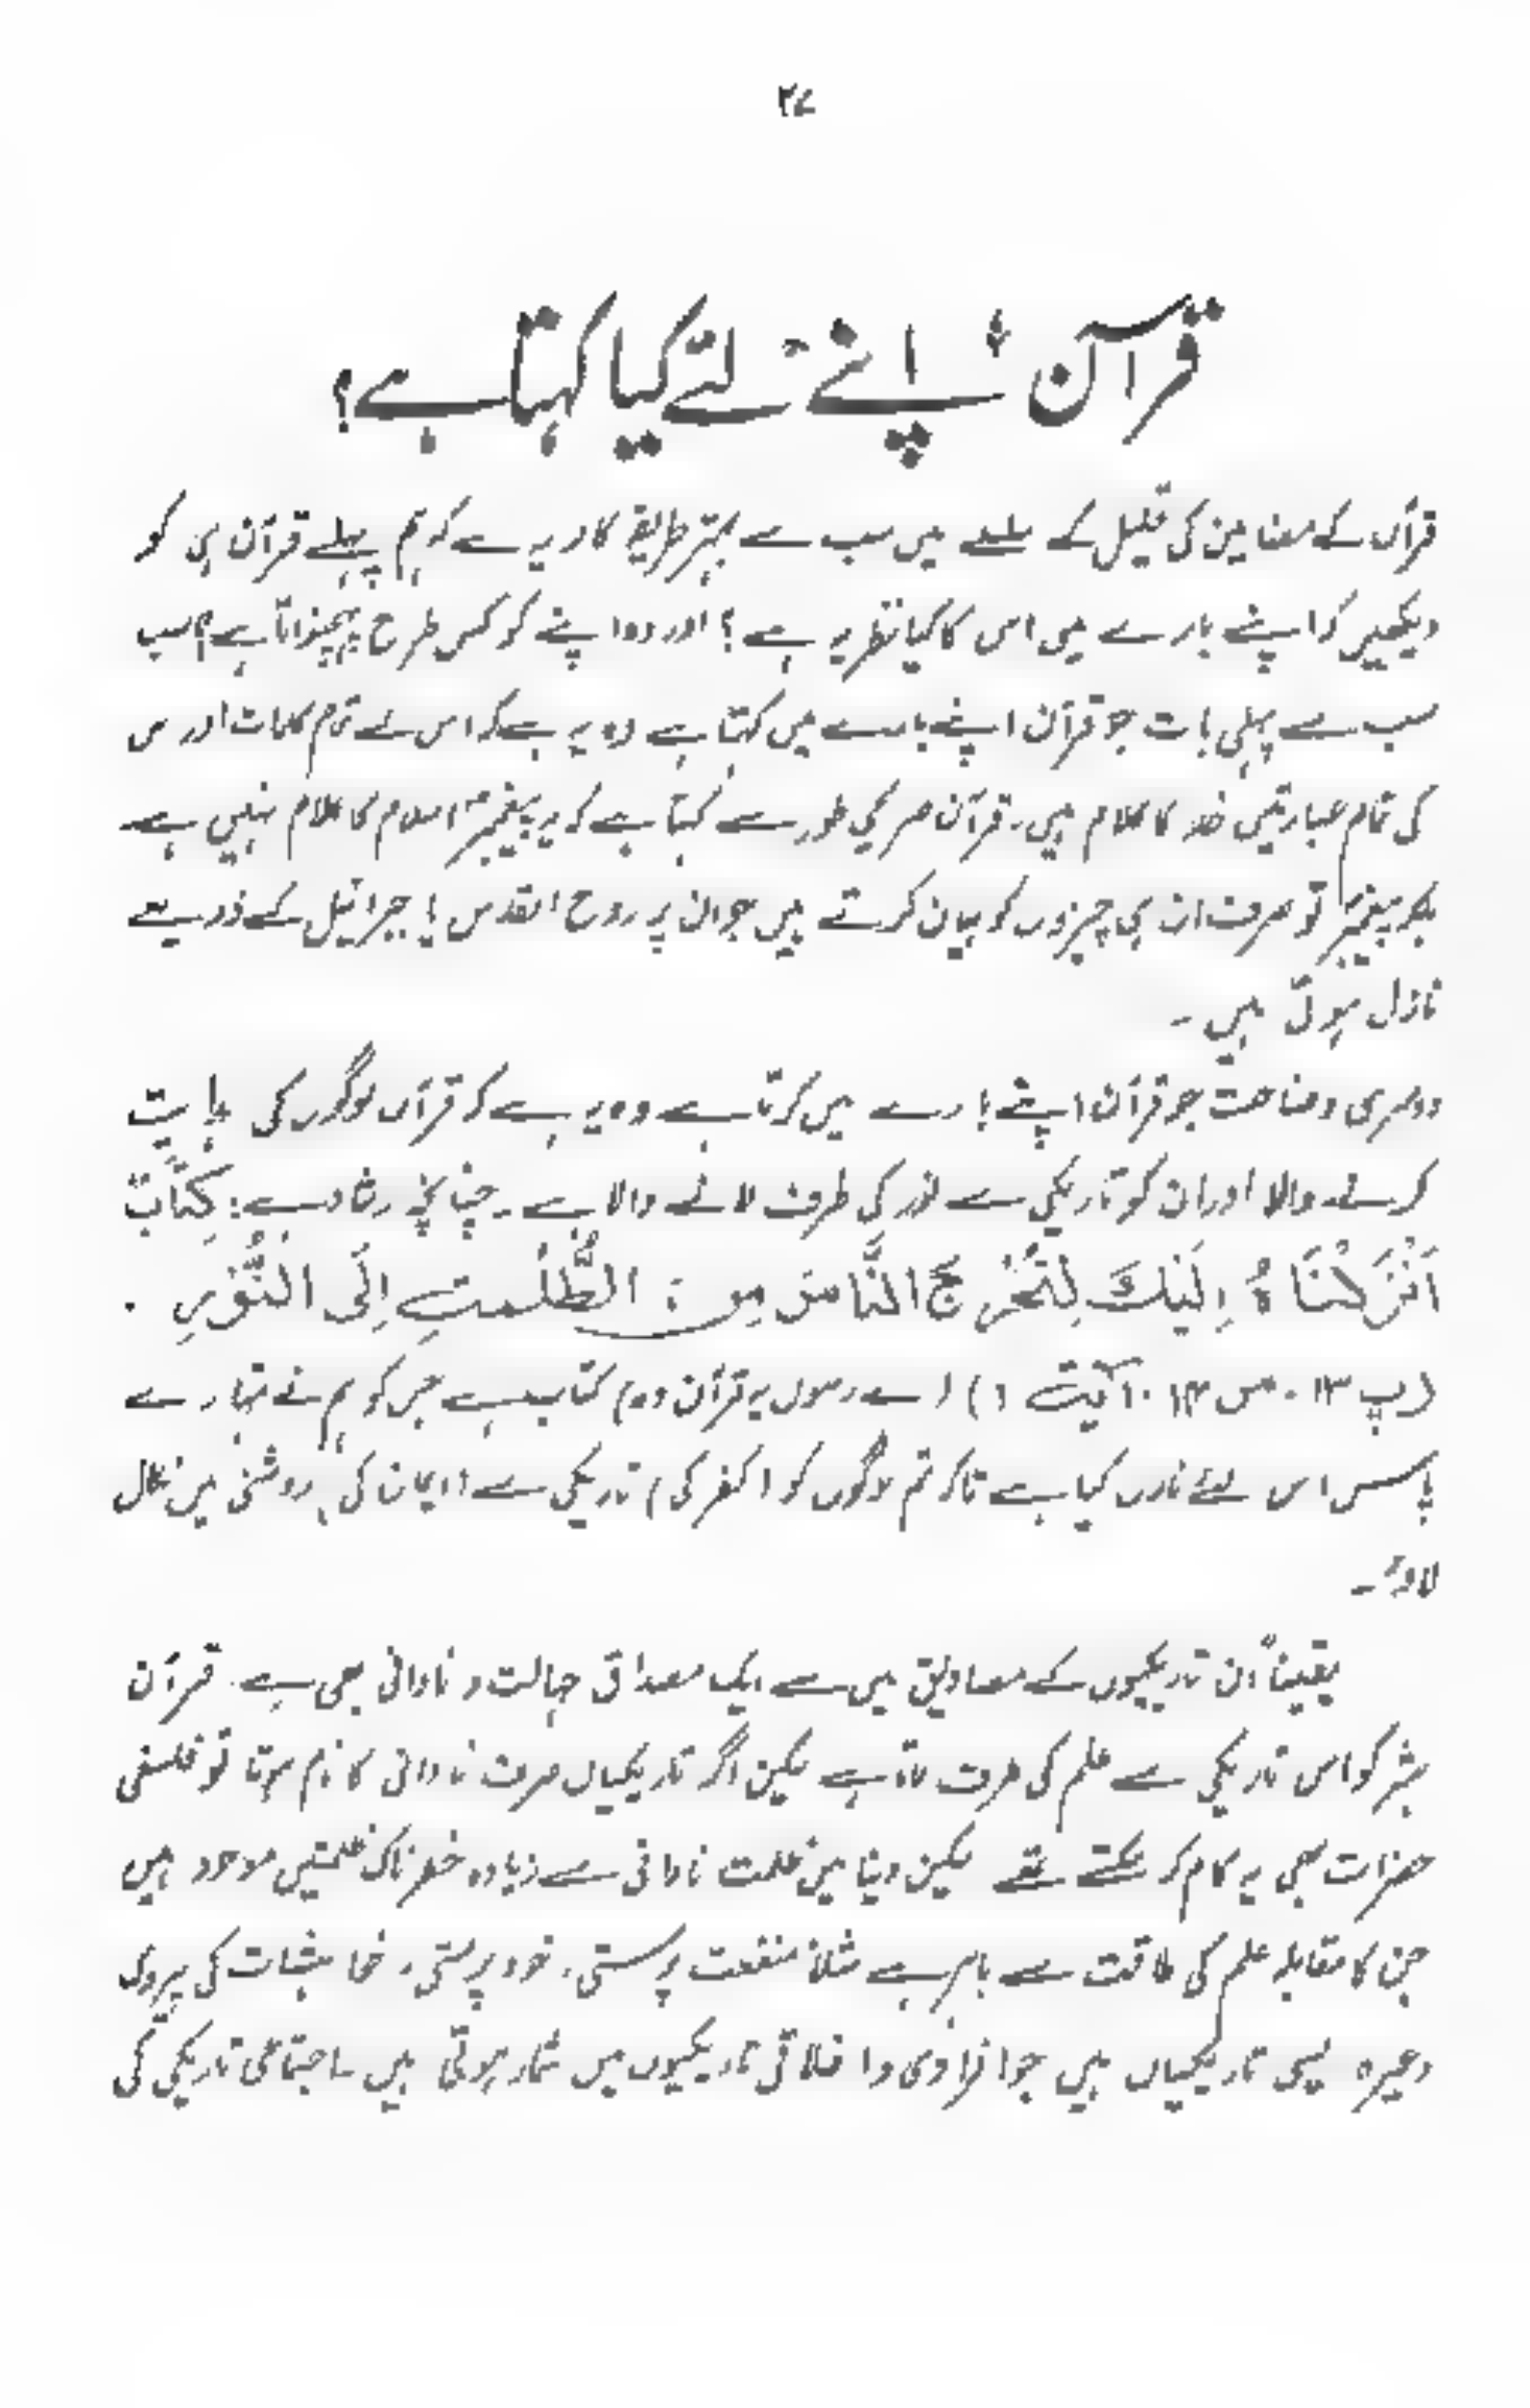 ۲۷
قرآن اپنے لئے کیا کہتا ہے؟
قرآن کے مضامین کی تحلیل کے سلسلے میں سب سے بہتر طریقہ کار یہ ہے کہ ہم پہلے قرآن ہی کو
دیکھیں کہ اپنے بارے میں اس کا کیا نظریہ ہے؟ اور وہ اپنے کو کس طرح پہچنواتا ہے؟ سب
سب سے پہلی بات جو قرآن اپنے بارے میں کہتا ہے وہ یہ ہے کہ اس کے تمام کلمات اور س
کی تمام عبارتیں خدا کا کلام ہیں۔ قرآن صریحی طور سے کہتا ہے کہ یہ پیغمبرؐ اسلام کا کلام نہیں ہے
بلکہ پیغمبرؐ تو صرف ان ہی چیزوں کو بیان کرتے ہیں جو ان پر روح القدس یا جبرائیل کے ذریعے
نازل ہوتی ہیں۔
دوسری وضاحت جو قرآن اپنے بارے میں کرتا ہے وہ یہ ہے کہ قرآن لوگوں کی ہدایت
کرنے والا اور ان کو تاریکی سے نور کی طرف لانے والا ہے۔ چنانچہ رشاد ہے: كِتَابٌ
اَنْزَلْنَاهُ اِلَيْكَ لِتُخْرِجَ النَّاسَ مِنَ الظُّلُمٰتِ اِلَى النُّوْرِ ۔
(پ ۱۳۔ س ۱۴۔ آیت ۱) (اے رسول یہ قرآن وہ) کتاب ہے جس کو ہم نے تمہارے
پاس اس لئے نازل کیا ہے تاکہ تم لوگوں کو (کفر کی) تاریکی سے (ایمان کی) روشنی میں نکال
لاؤ۔
یقیناً ان تاریکیوں کے مصادیق میں سے ایک مصداق جہالت و نادانی بھی ہے۔ قرآن
بشر کو اس تاریکی سے علم کی طرف لاتا ہے لیکن اگر تاریکیاں صرف نادانی کا نام ہوتا تو فلسفی
حضرات بھی یہ کام کر سکتے تھے لیکن دنیا میں ظلمت نادانی سے زیادہ خطرناک ظلمتیں موجود ہیں
جن کا مقابلہ علم کی طاقت سے باہر ہے مثلاً منفعت پرستی، خود پرستی، خواہشات کی پیروی
وغیرہ ایسی تاریکیاں ہیں جو انفرادی و اخلاقی تاریکیوں میں شمار ہوتی ہیں۔ اجتماعی تاریکی کی